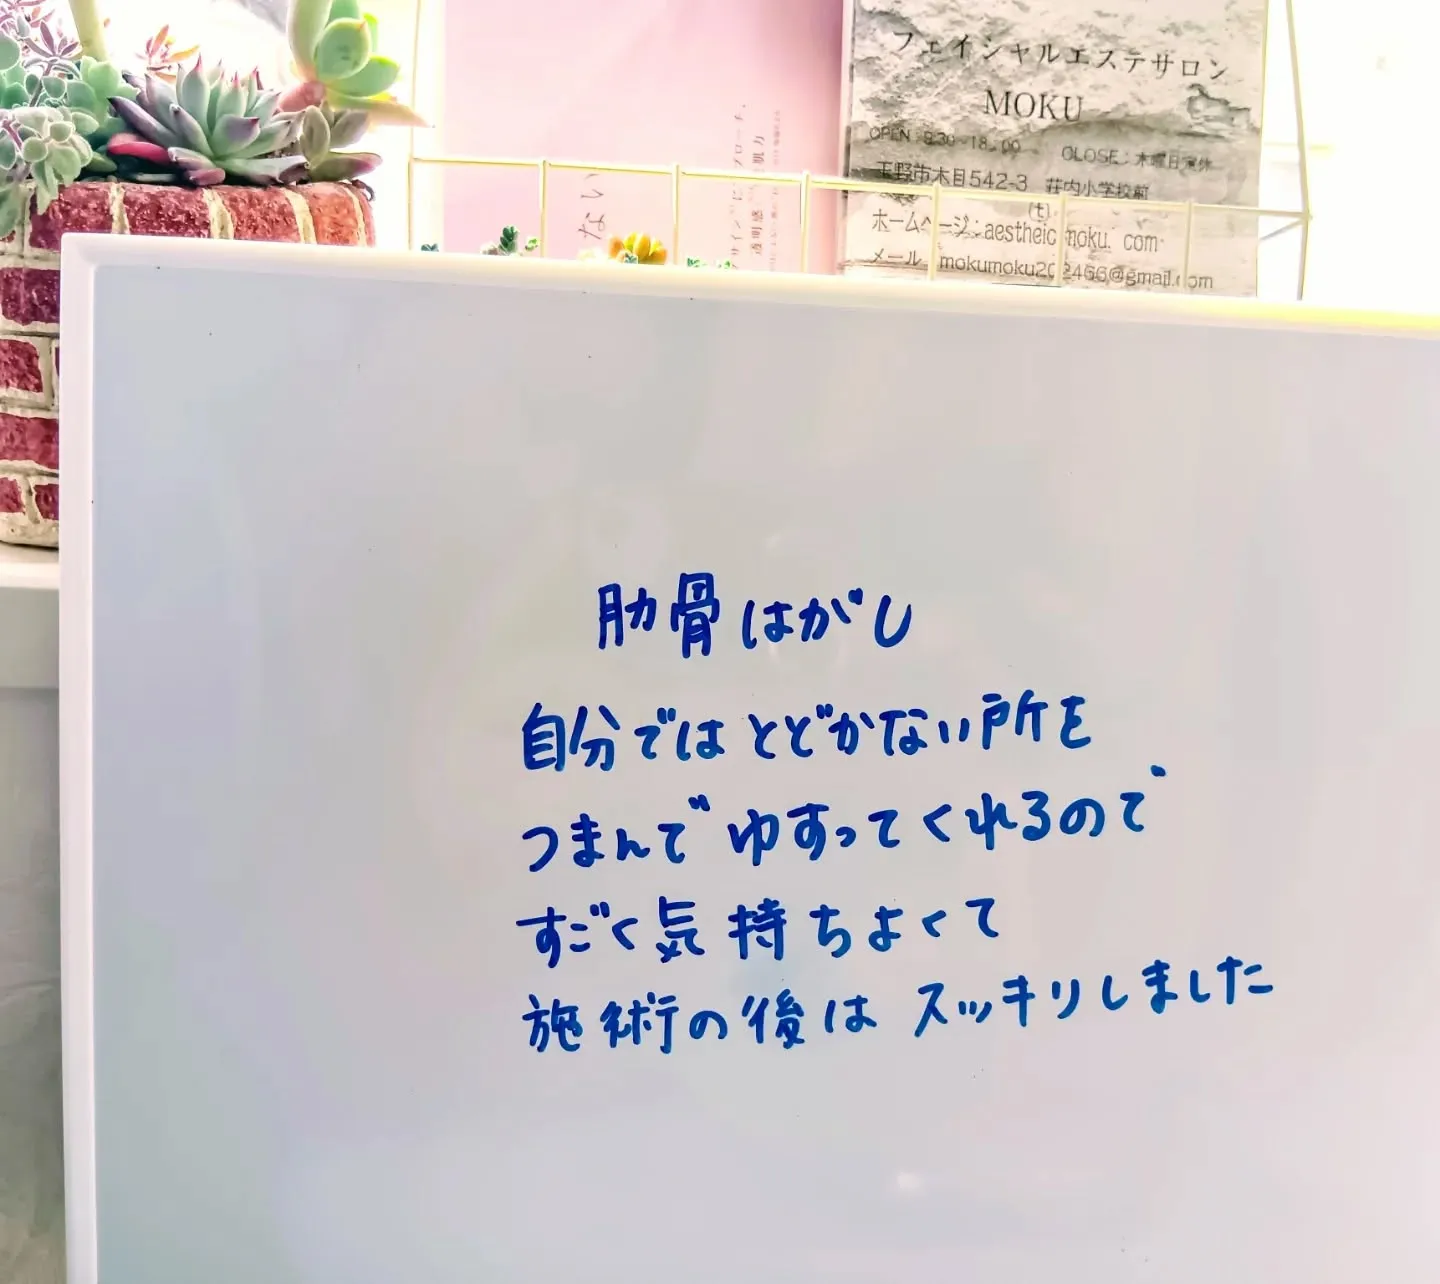 フェイシャルエステサロン
MOKU
OPEN:9:30~18:00 CLOSE:木曜日定休
玉野市木目542-3 荘内小学校前
ホームページ:aestheic moku. com
メール
@gmail.com
ない
透明感
肋骨はがし
自分ではとどかない所を
つまんでゆすってくれるので
すごく気持ちよくて
施術の後は スッキリしました